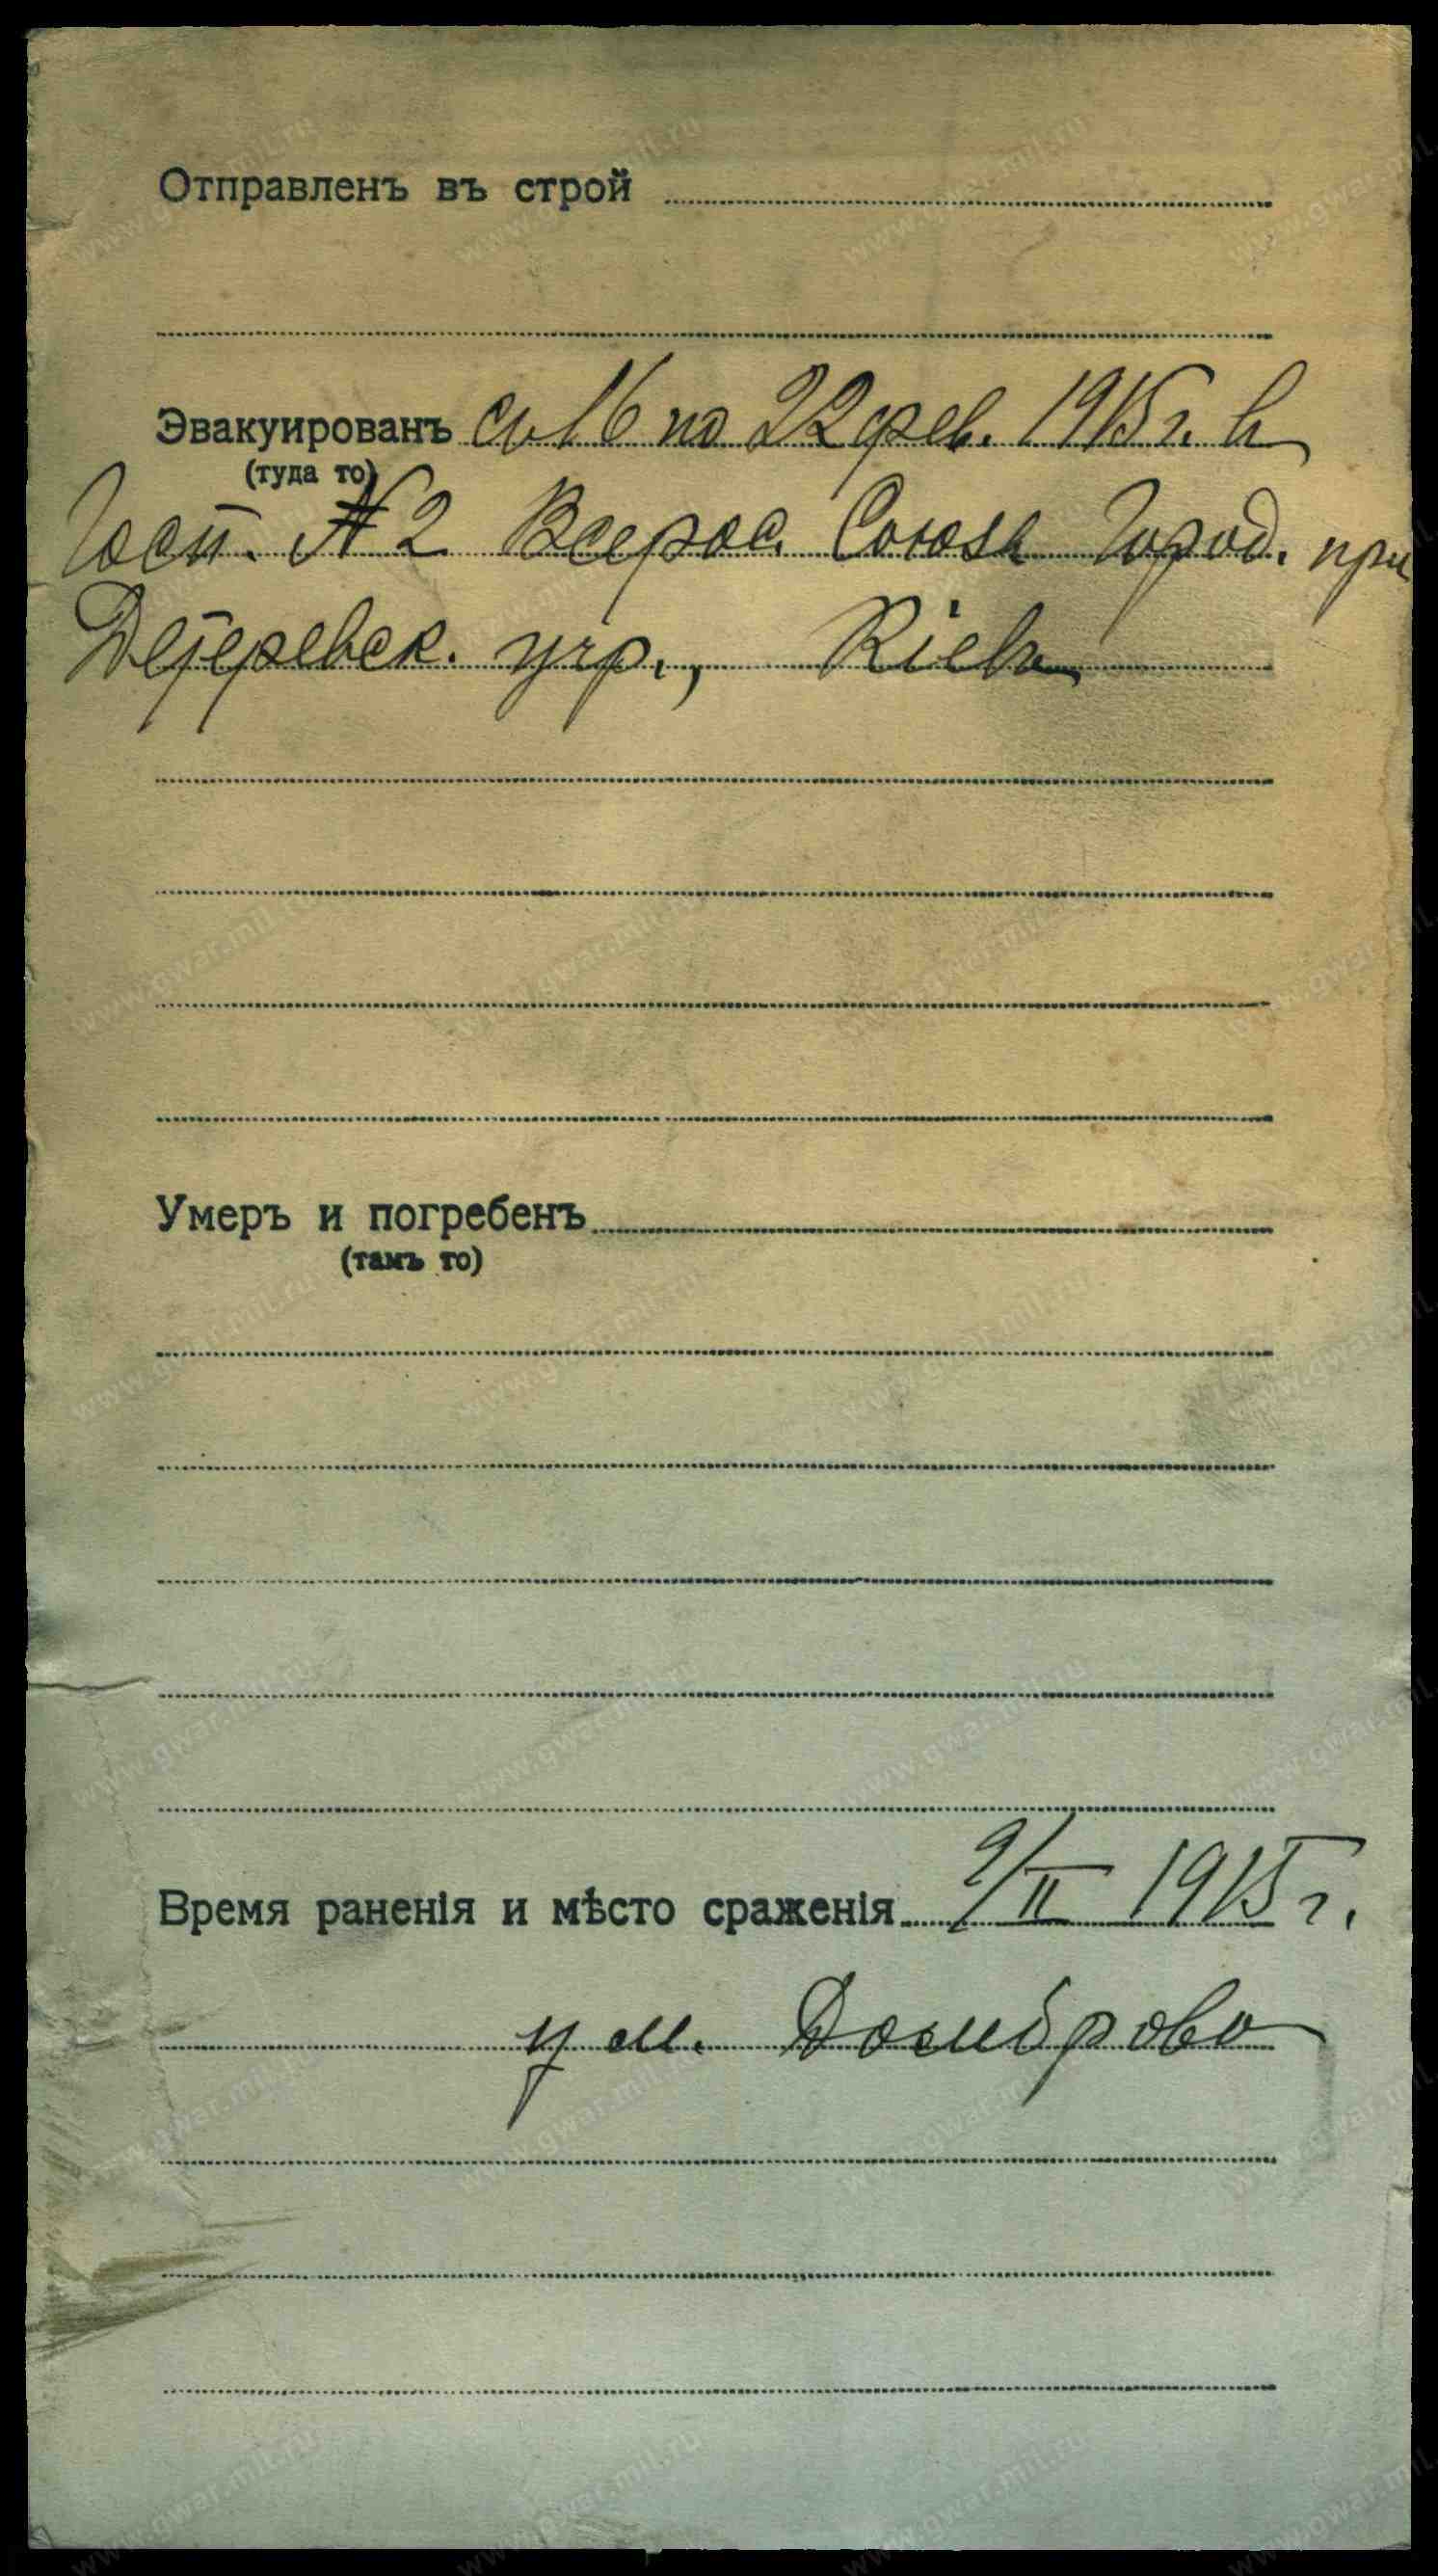 Отправленъ въ строй
Эвакуированъ съ 16 по 22 фев. 1915 г. в
(туда то)
Госп. № 2 Всерос. Союза Город. при
Дегтеревск. учр., Кіевъ
Умеръ и погребенъ
(тамъ то)
Время раненія и мѣсто сраженія 9/II 1915 г.
у м. Домброво